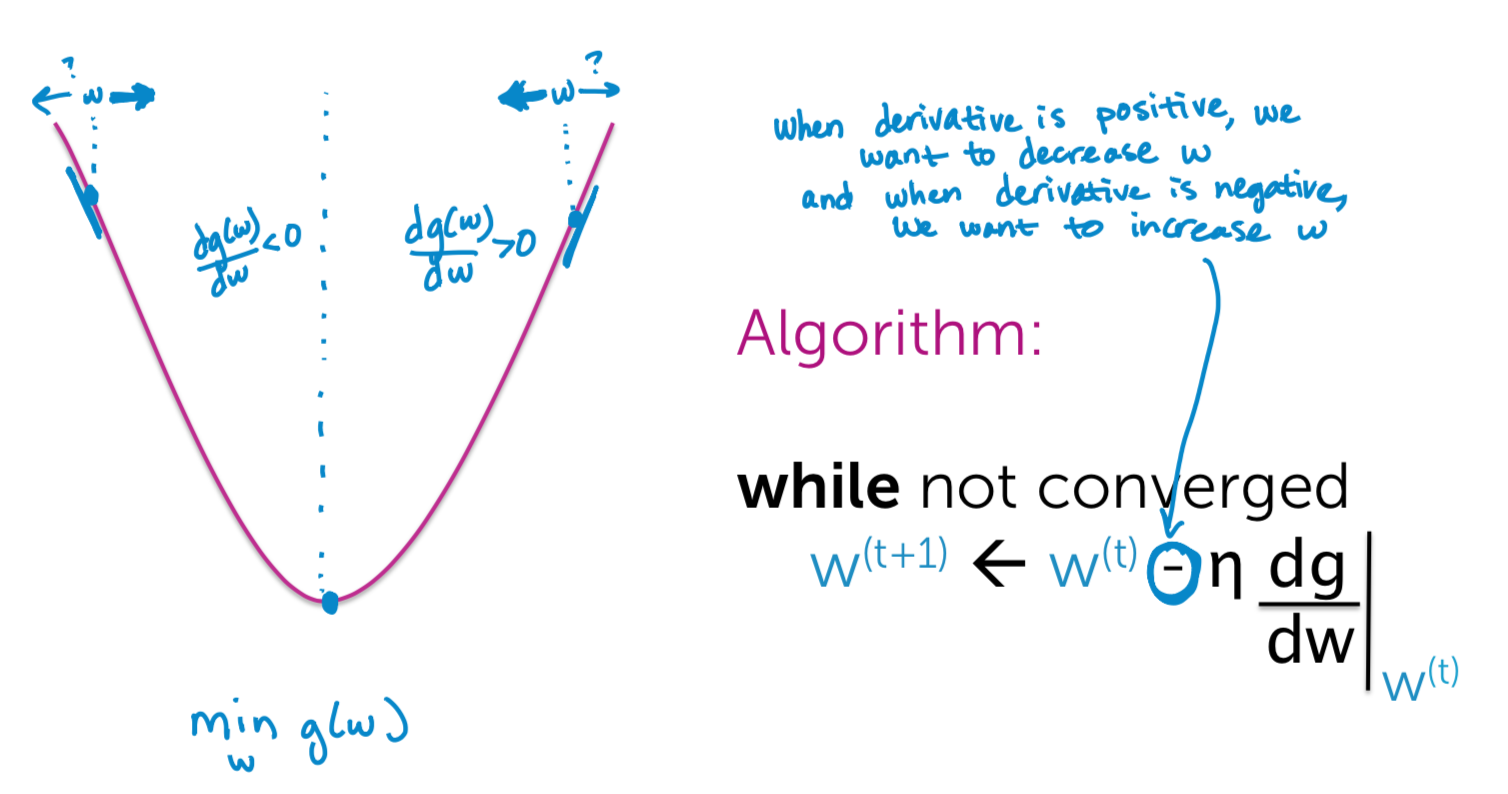 ? w
w ?
dg(w)/dw < 0
dg(w)/dw > 0
min g(w)
w
when derivative is positive, we
want to decrease w
and when derivative is negative,
we want to increase w
Algorithm:
while not converged
w^(t+1) ← w^(t) - η dg/dw |_w^(t)